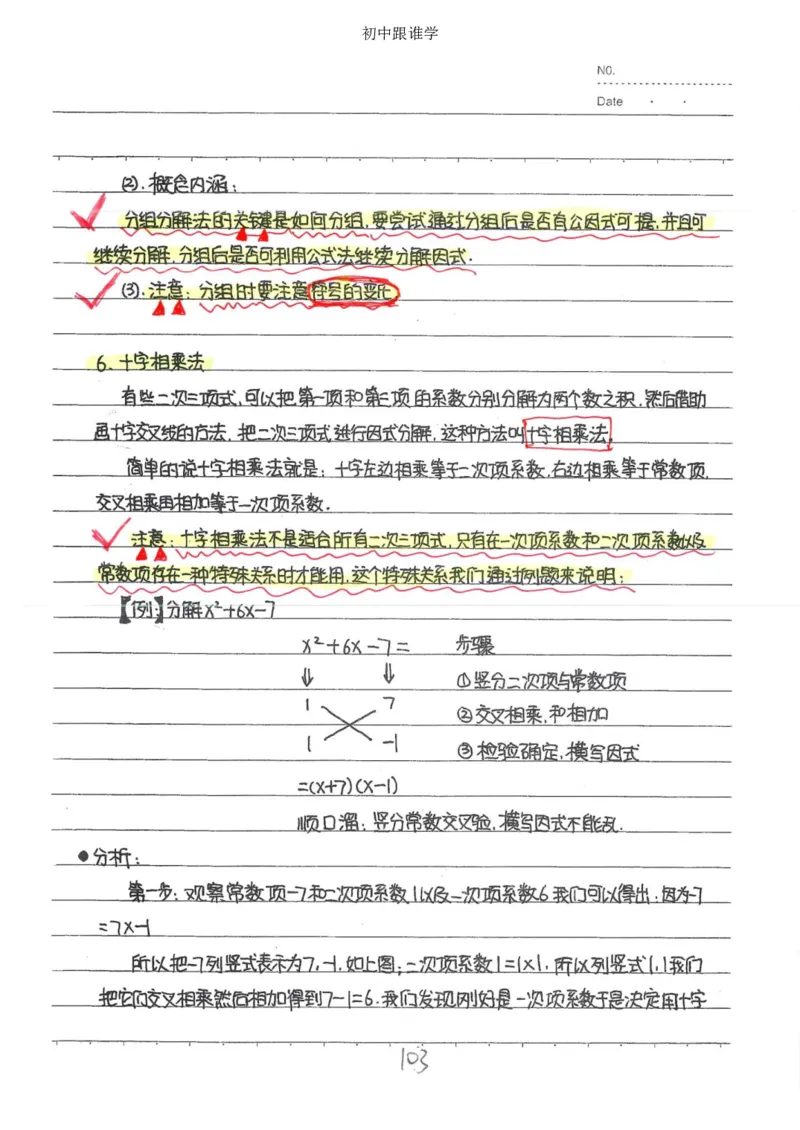 初中跟谁学
NO.
Date · ·
(2).概念内涵:
分组分解法的关键是如何分组,要尝试通过分组后是否有公因式可提,并且可
继续分解,分组后是否可利用公式法继续分解因式.
(3).注意:分组时要注意符号的变化
6.十字相乘法
有些二次三项式,可以把第一项和第三项的系数分别分解为两个数之积,然后借助
画十字交叉线的方法,把二次三项式进行因式分解,这种方法叫十字相乘法.
简单的说十字相乘法就是:十字左边相乘等于二次项系数,右边相乘等于常数项,
交叉相乘再相加等于一次项系数.
注意:十字相乘法不是适合所有二次三项式,只有在一次项系数和二次项系数以及
常数项存在一种特殊关系时才能用,这个特殊关系我们通过例题来说明:
【例】分解x²+6x-7
x²+6x-7= 步骤
⇓ ⇓ ①竖分二次项与常数项
1 7
②交叉相乘,和相加
1 -1
③检验确定,横写因式
=(x+7)(x-1)
顺口溜:竖分常数交叉验,横写因式不能乱.
●分析:
第一步:观察常数项-7和二次项系数1以及一次项系数6我们可以得出:因为-7
=7x-1
所以把-7列竖式表示为7,-1,如上图;二次项系数1=1×1,所以列竖式1,1我们
把它们交叉相乘然后相加得到7-1=6.我们发现刚好是一次项系数于是决定用十字
103